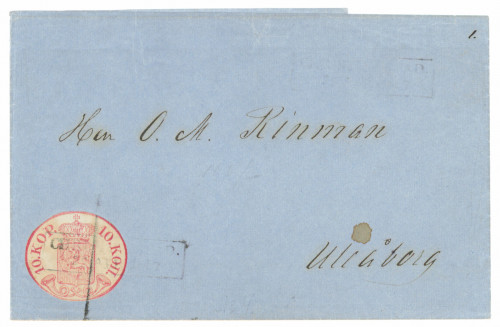 1.
Herr O. M. Kinman
10. KOP. 10. КОП.
Uleåborg